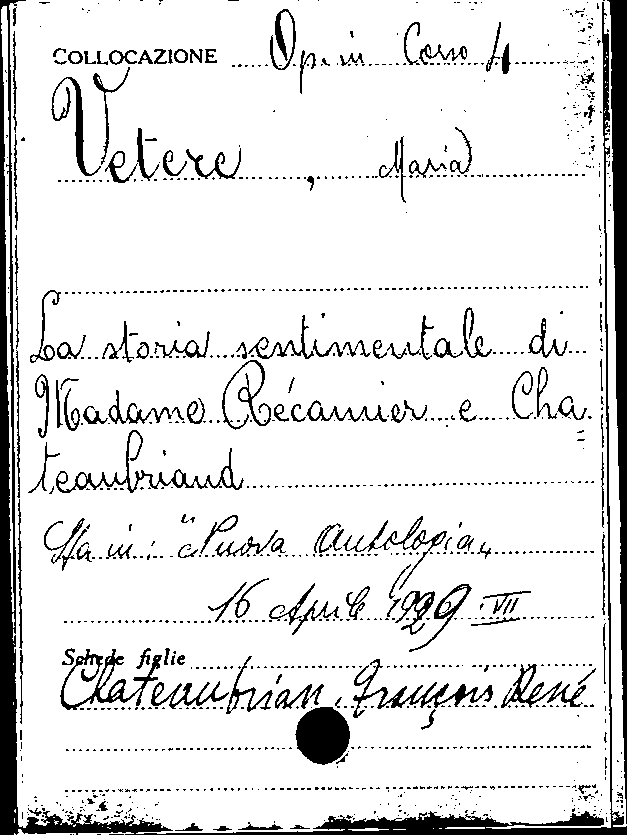 COLLOCAZIONE Op. in Corso 4
Vetere , Maria
La storia sentimentale di
Madame Récamier e Cha=
teaubriand
Sta in: "Nuova Antologia„
16 Aprile 1929 . VII
Schede figlie
Chateaubrian, François René